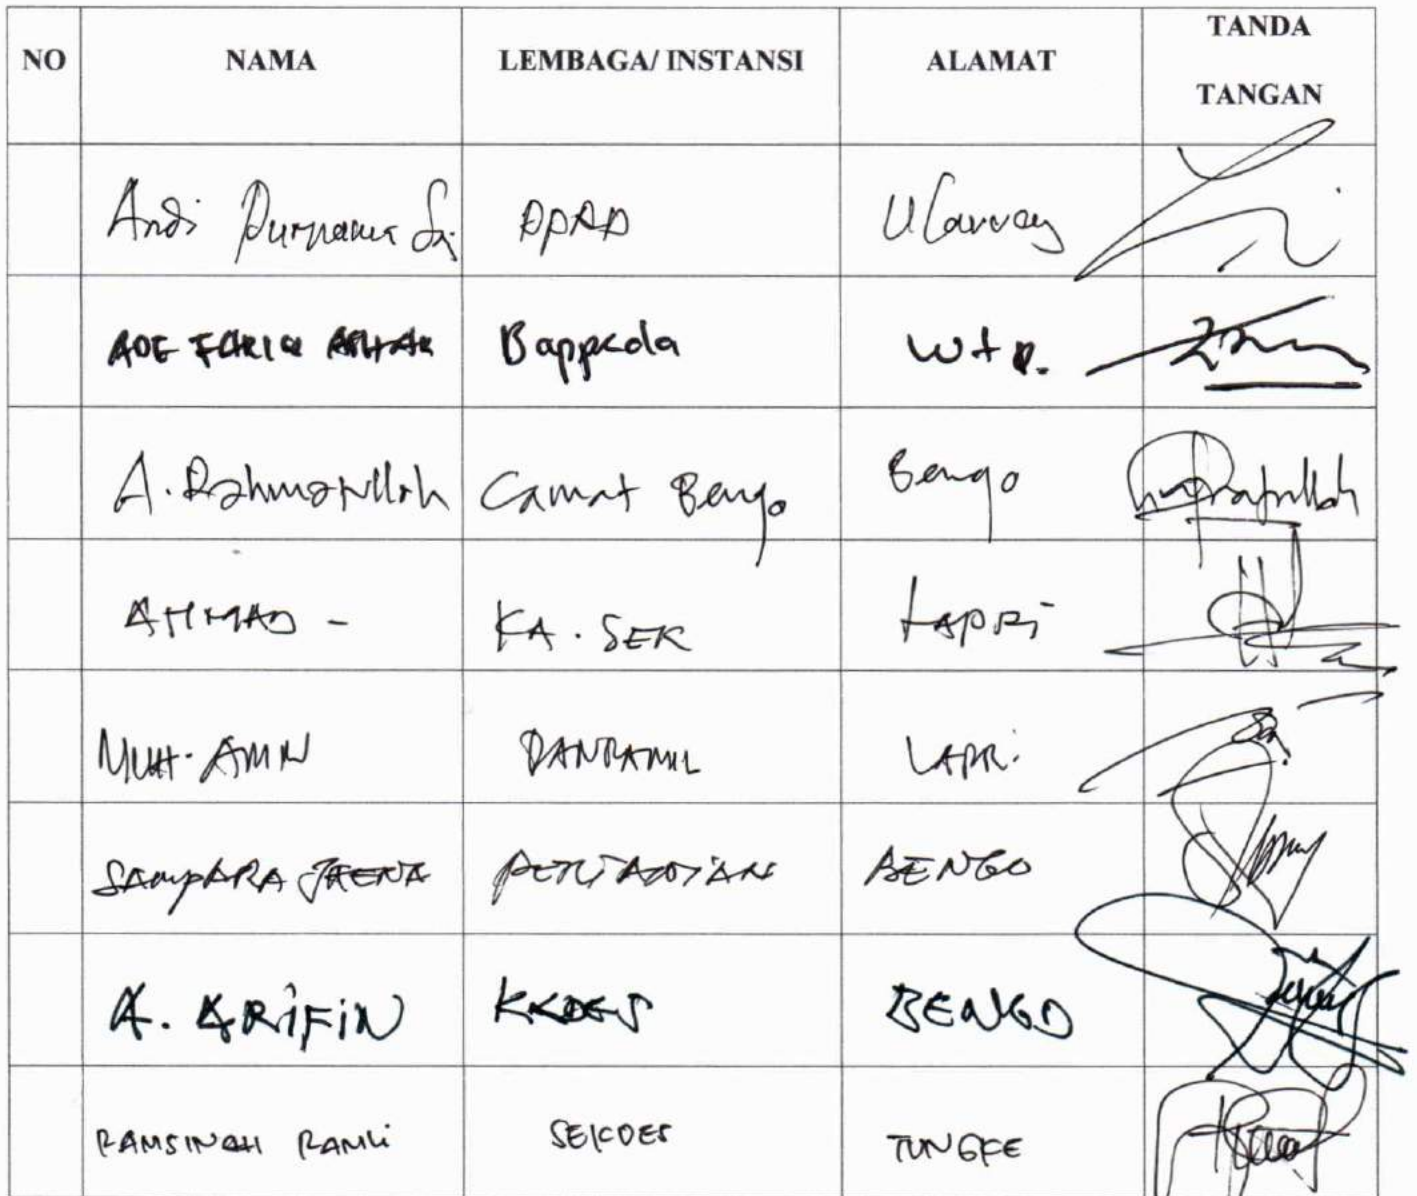 NO NAMA LEMBAGA/ INSTANSI ALAMAT TANDA
TANGAN
Andi Purnama Sri DPRD Ulaweng
ADE Bappeda Wtp.
A. Rahmatullah Camat Bengo Bengo
AHMAD - KA. SEK LAPRI
MUH. AMIN DANRAMIL LAPRI
SAMPARA JAENA PERTANIAN BENGO
A. ARIFIN KKDES BENGO
RAMSINAH RAMLI SEKDES TUNGKE